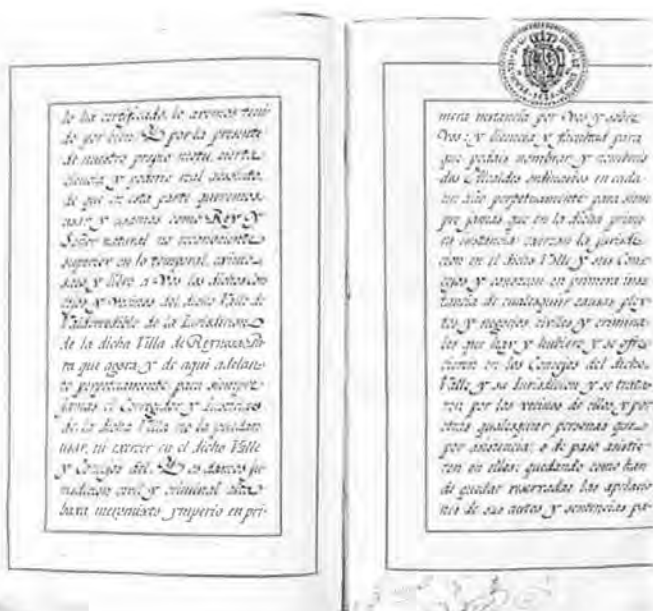 se ha certificado, lo avemos teni
do por bien. Y por la presente
de nuestro propio motu, cierta
ciencia y poderio real absoluto,
de que en esta parte queremos
usar y usamos como Rey y
Señor natural no reconociente
superior en lo temporal, eximo
saco y libro a Vos los dichos Con
cejos y Vecinos del dicho Valle de
Valderredible de la Jurisdicion
de la dicha Villa de Reynosa Pa
ra que agora y de aqui adelan
te perpetuamente para siempre
jamas el Corregidor y
de la dicha Villa no la puedan
usar, ni exercer en el dicho Valle
y Concejos del. Y os damos ju
risdicion civil y criminal alta
baxa meromixto ymperio en pri-
mera instancia por Vos y sobre
Vos: y licencia y facultad para
que podais nombrar y nombreis
dos Alcaldes ordinarios en cada
un año perpetuamente para siem
pre jamas que en la dicha prime
ra instancia exerzan la jurisdi
cion en el dicho Valle y sus Conce
jos y conozcan en primera ins
tancia de qualesquier causas pley
tos y negocios civiles y crimina
les que hay y hubiere y se ofre
cieren en los Concejos del dicho
Valle y su Jurisdicion y se trata
ren por los vecinos de ellos y por
otras qualesquier personas que
por asistencia, o de paso asistie
ren en ellos: quedando como han
de quedar reservadas las apelacio
nes de sus autos y sentencias pa-